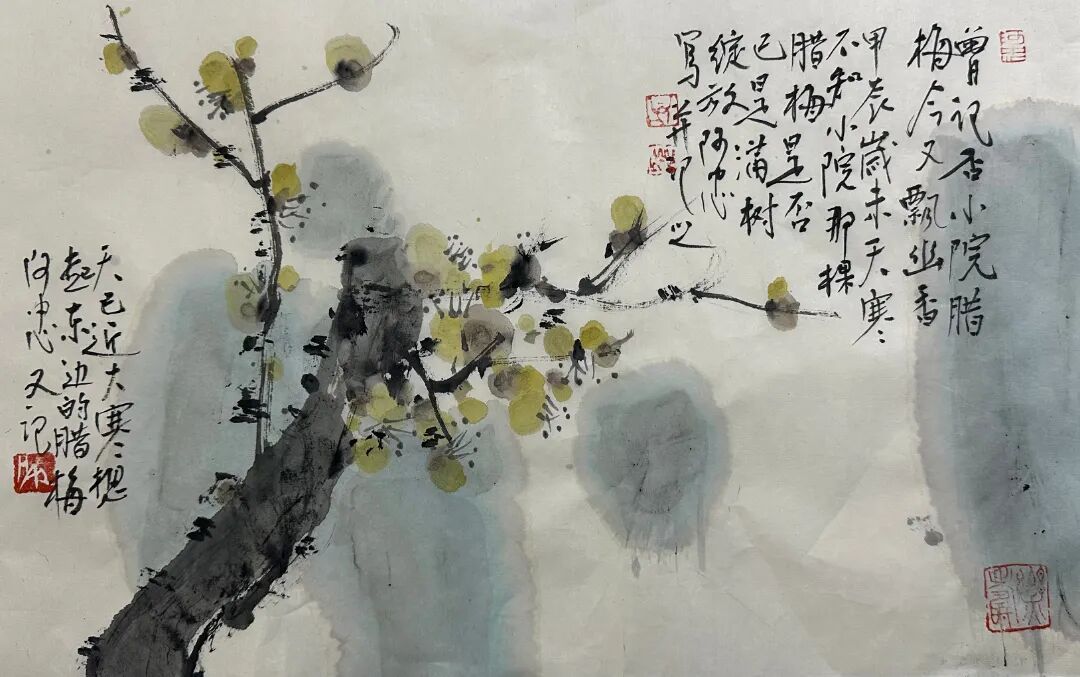 曾记否小院腊
梅今又飘幽香
甲辰岁末天寒
不知小院那棵
腊梅是否
已是满树
绽放阿忠
写并记之
天已近大寒想
起东边的腊梅
阿忠又记